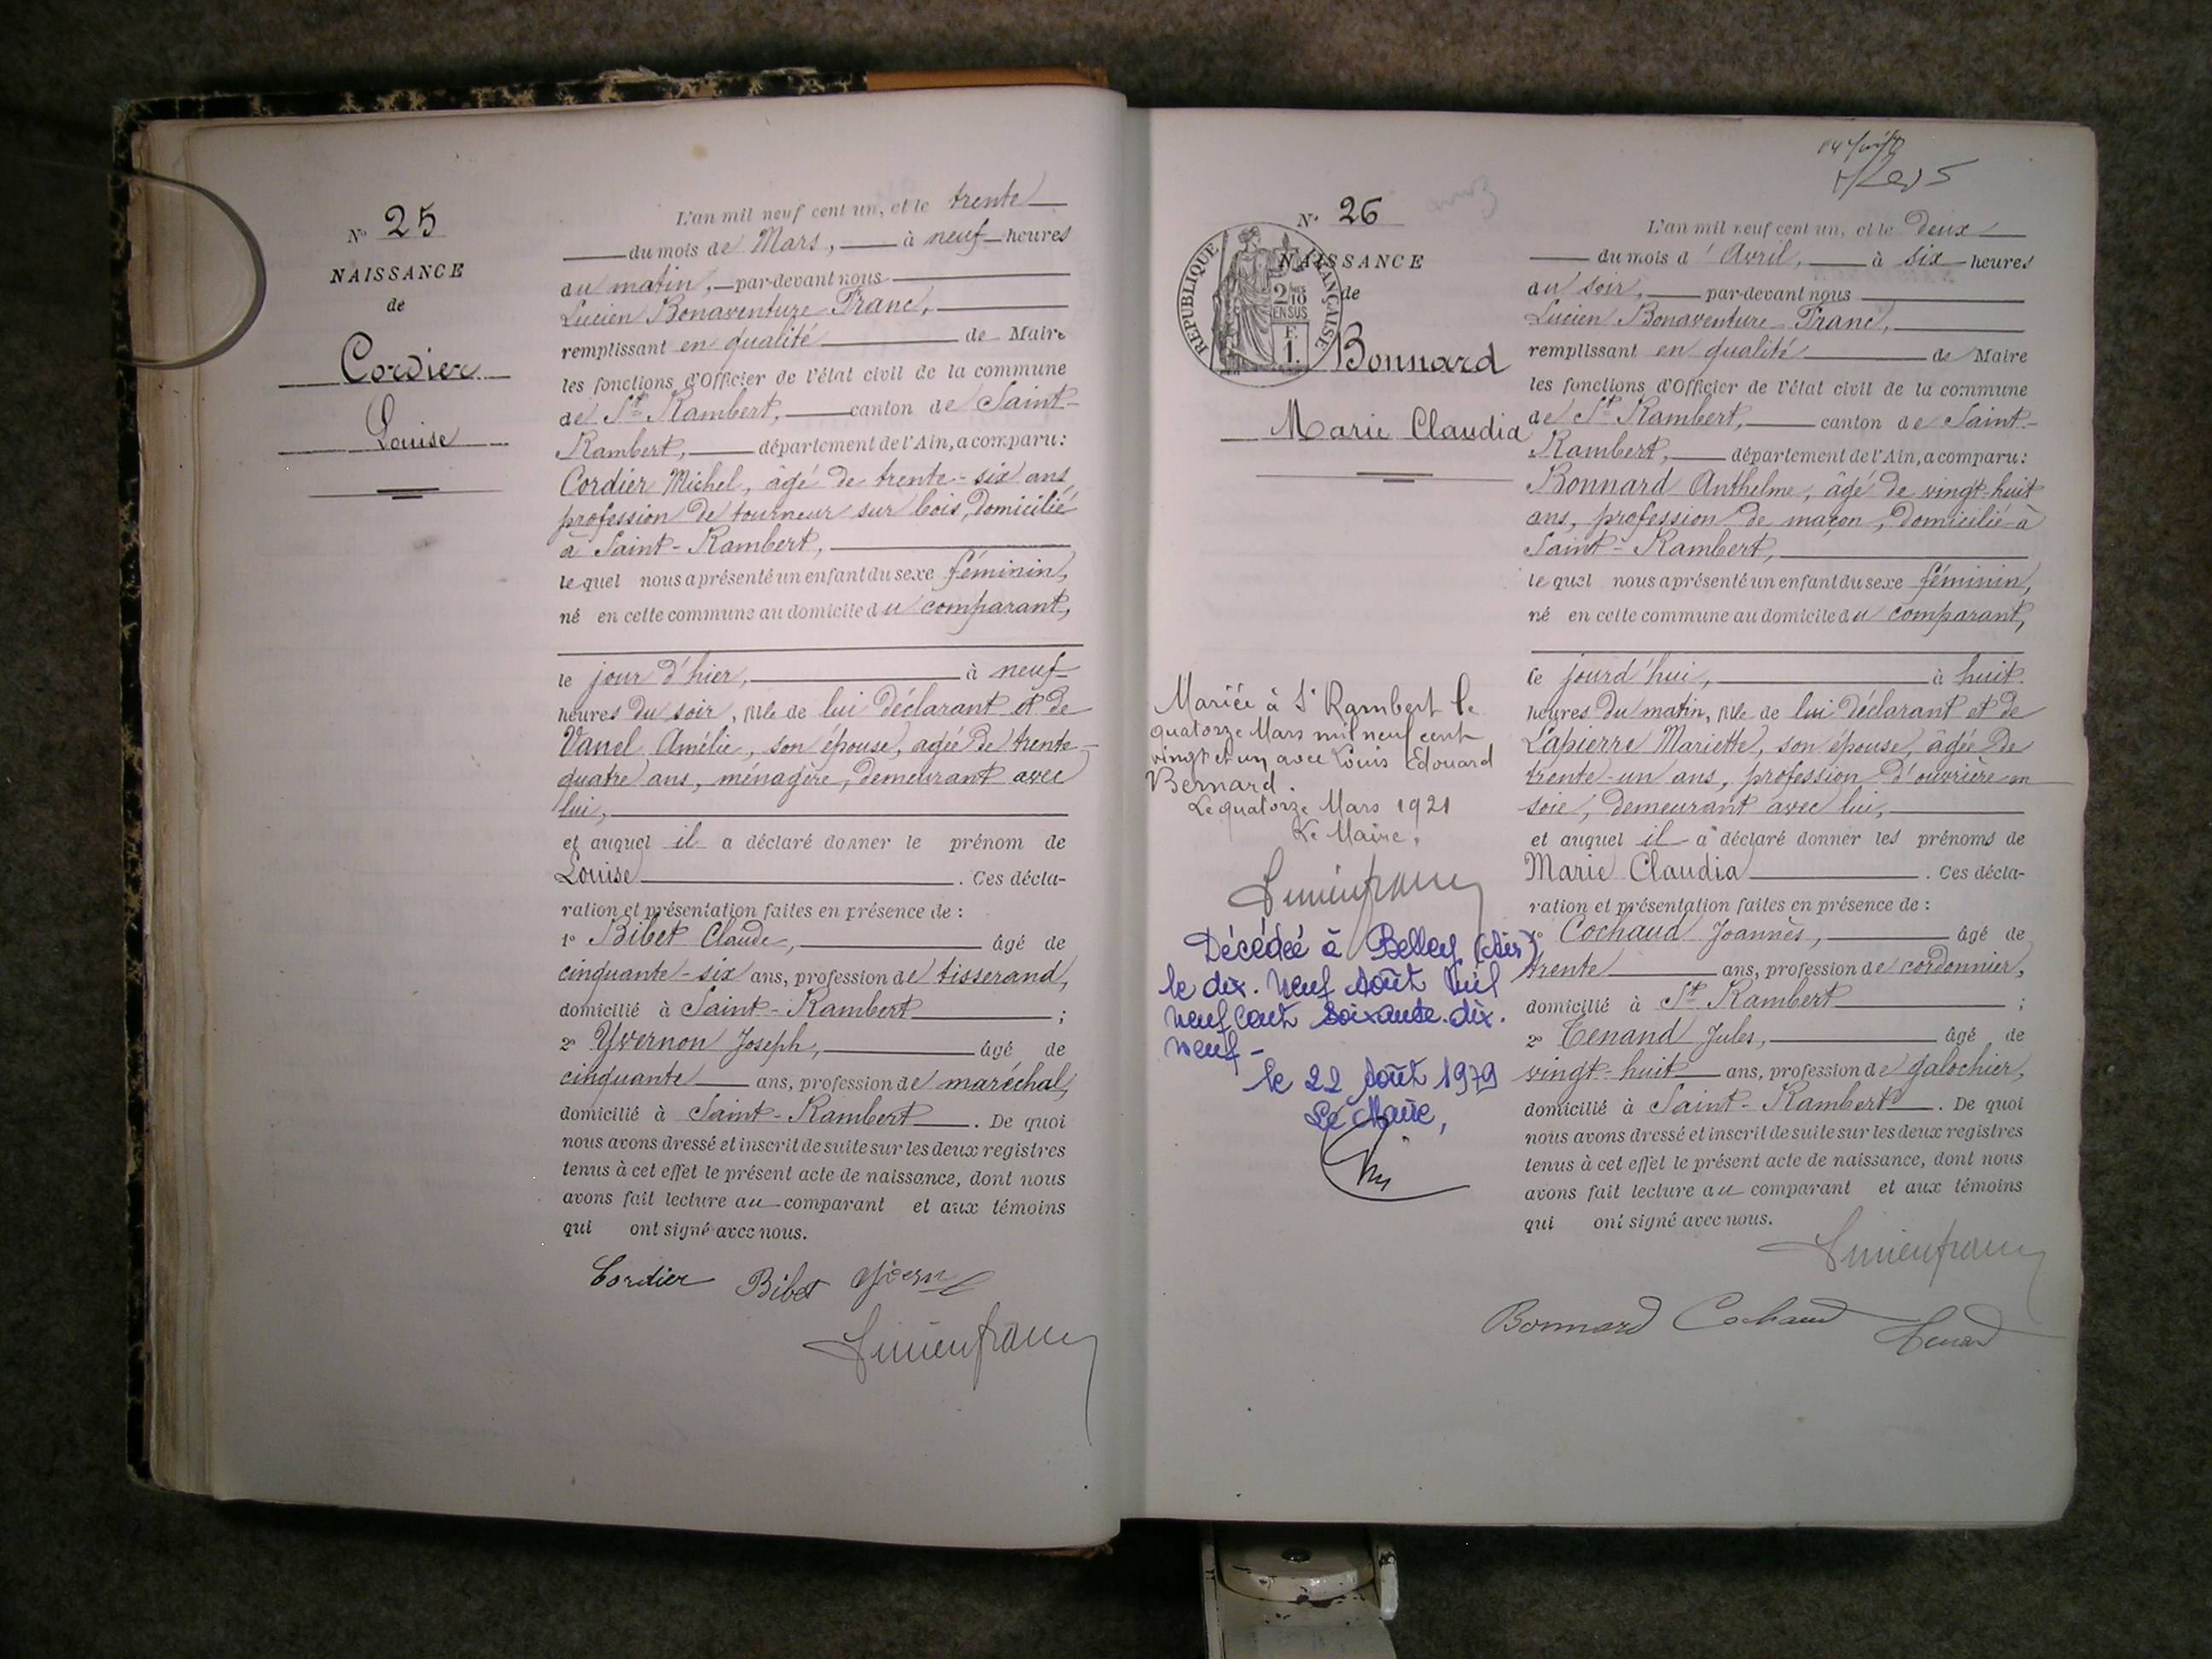 N° 25
NAISSANCE
de
Cordier
Louise
L'an mil neuf cent un, et le trente
du mois de Mars, à neuf heures
du matin, par-devant nous
Lucien Bonaventure Franc,
remplissant en qualité de Maire
les fonctions d'Officier de l'état civil de la commune
de St Rambert, canton de Saint-
Rambert, département de l'Ain, a comparu:
Cordier Michel, âgé de trente-six ans
profession de tourneur sur bois, domicilié
à Saint-Rambert,
lequel nous a présenté un enfant du sexe féminin,
né en cette commune au domicile du comparant,
le jour d'hier, à neuf
heures du soir, fille de lui déclarant et de
Vanel Amélie, son épouse, agée de trente-
quatre ans, ménagère, demeurant avec
lui,
et auquel il a déclaré donner le prénom de
Louise. Ces décla-
ration et présentation faites en présence de :
1° Bibet Claude, âgé de
cinquante-six ans, profession de tisserand,
domicilié à Saint-Rambert ;
2° Yvernon Joseph, âgé de
cinquante ans, profession de maréchal,
domicilié à Saint-Rambert. De quoi
nous avons dressé et inscrit de suite sur les deux registres
tenus à cet effet le présent acte de naissance, dont nous
avons fait lecture au comparant et aux témoins
qui ont signé avec nous.
Cordier Bibet
Lucien franc
N° 26
NAISSANCE
de
RÉPUBLIQUE FRANÇAISE
2/10
EN SUS
F.
1.
Bonnard
Marie Claudia
Mariée à St Rambert le
quatorze Mars mil neuf cent
vingt et un avec Louis Edouard
Bernard.
Le quatorze Mars 1921
Le Maire,
Lucien franc
Décédée à Belley (Ain)
le dix. neuf Août Mil
neuf cent soixante. dix.
neuf -
le 22 Août 1979
Le Maire,
L'an mil neuf cent un, et le deux
du mois d'Avril, à six heures
du soir, par-devant nous
Lucien Bonaventure Franc,
remplissant en qualité de Maire
les fonctions d'Officier de l'état civil de la commune
de St Rambert, canton de Saint-
Rambert, département de l'Ain, a comparu:
Bonnard Anthelme, âgé de vingt-huit
ans, profession de maçon, domicilié à
Saint-Rambert,
lequel nous a présenté un enfant du sexe féminin,
né en cette commune au domicile du comparant,
ce jourd'hui, à huit
heures du matin, fille de lui déclarant et de
Lapierre Mariette, son épouse, âgée de
trente-un ans, profession d'ouvrière en
soie, demeurant avec lui,
et auquel il a déclaré donner les prénoms de
Marie Claudia. Ces décla-
ration et présentation faites en présence de :
1° Cochaud Joannès, âgé de
trente ans, profession de cordonnier,
domicilié à St Rambert ;
2° Tenand Jules, âgé de
vingt-huit ans, profession de galochier,
domicilié à Saint-Rambert. De quoi
nous avons dressé et inscrit de suite sur les deux registres
tenus à cet effet le présent acte de naissance, dont nous
avons fait lecture au comparant et aux témoins
qui ont signé avec nous.
Lucien franc
Bonnard Cochaud Tenand